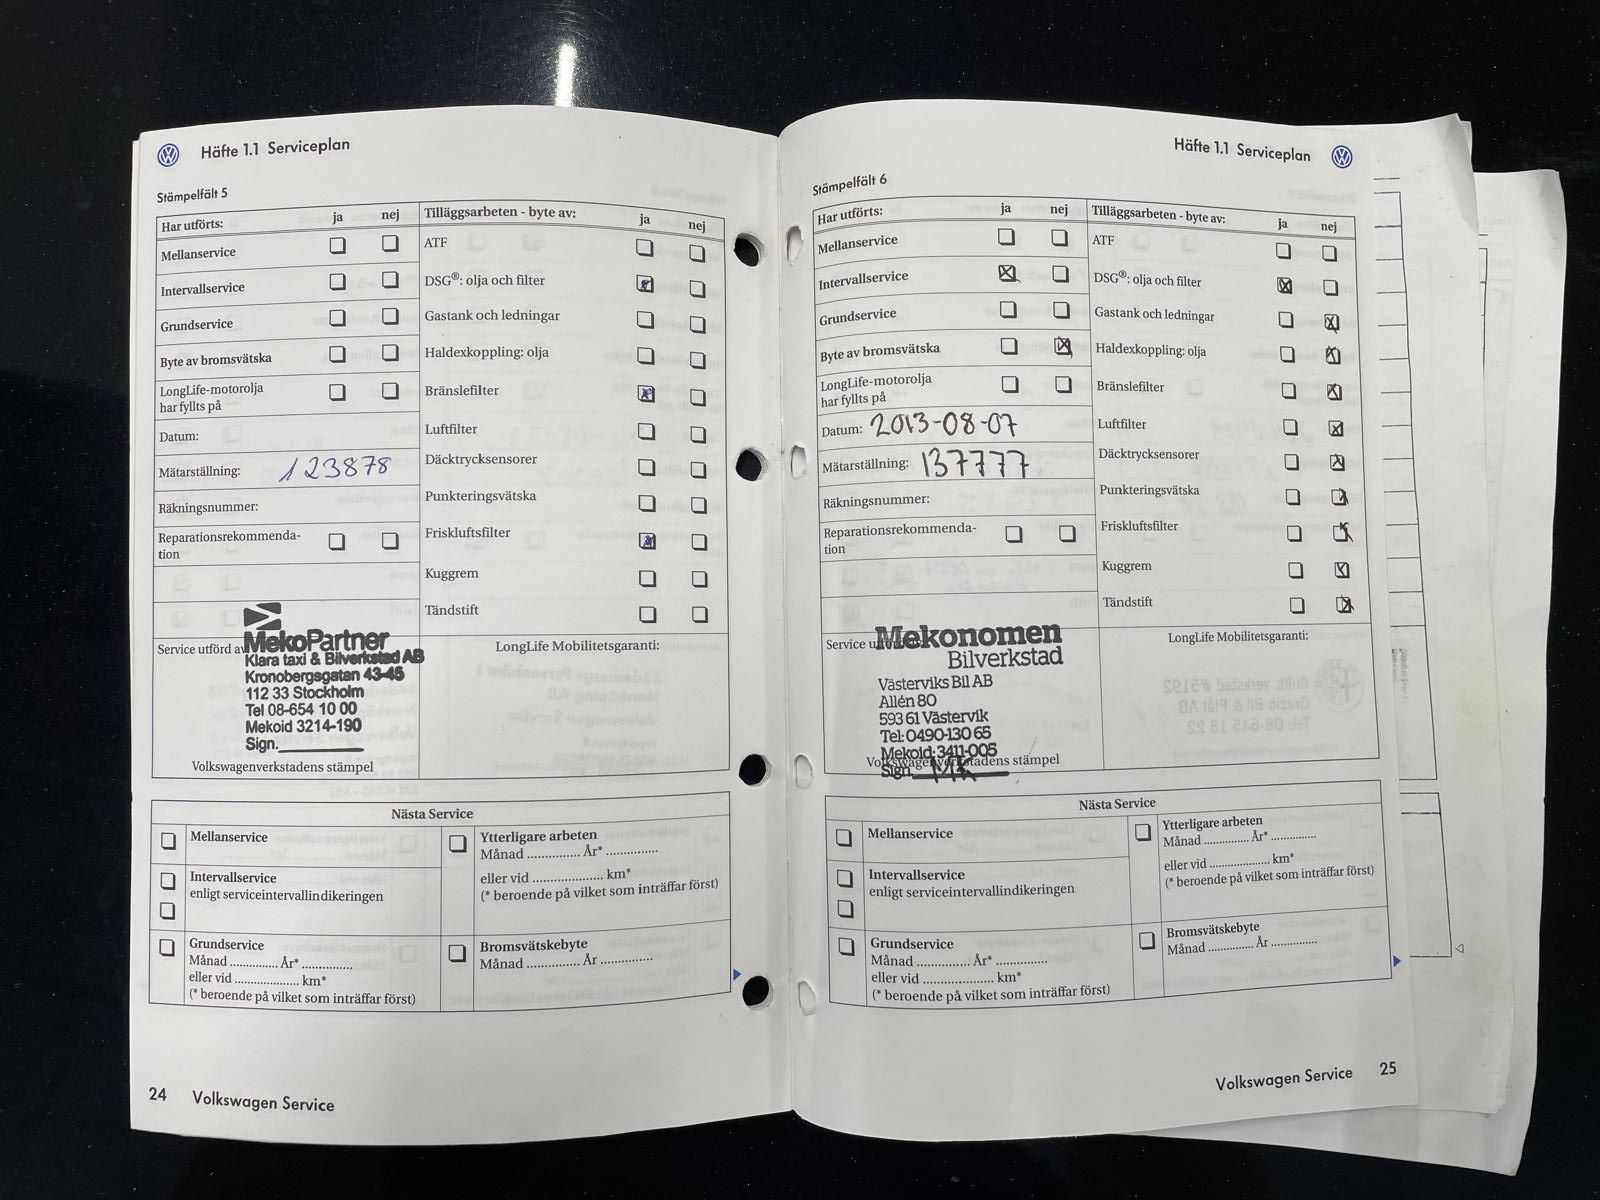 Häfte 1.1 Serviceplan
Stämpelfält 5
Har utförts: ja nej
Mellanservice
Intervallservice
Grundservice
Byte av bromsvätska
LongLife-motorolja
har fyllts på
Datum:
Mätarställning: 123878
Räkningsnummer:
Reparationsrekommenda-
tion
Tilläggsarbeten - byte av: ja nej
ATF
DSG®: olja och filter
Gastank och ledningar
Haldexkoppling: olja
Bränslefilter
Luftfilter
Däcktrycksensorer
Punkteringsvätska
Friskluftsfilter
Kuggrem
Tändstift
Service utförd av
MekoPartner
Klara taxi & Bilverkstad AB
Kronobergsgatan 43-45
112 33 Stockholm
Tel 08-654 10 00
Mekoid 3214-190
Sign.
Volkswagenverkstadens stämpel
LongLife Mobilitetsgaranti:
Nästa Service
Mellanservice
Intervallservice
enligt serviceintervallindikeringen
Grundservice
Månad .............. År* ...............
eller vid .................... km*
(* beroende på vilket som inträffar först)
Ytterligare arbeten
Månad ............... År* ...............
eller vid .................... km*
(* beroende på vilket som inträffar först)
Bromsvätskebyte
Månad ............. År ...............
24 Volkswagen Service
Häfte 1.1 Serviceplan
Stämpelfält 6
Har utförts: ja nej
Mellanservice
Intervallservice
Grundservice
Byte av bromsvätska
LongLife-motorolja
har fyllts på
Datum: 2013-08-07
Mätarställning: 137777
Räkningsnummer:
Reparationsrekommenda-
tion
Tilläggsarbeten - byte av: ja nej
ATF
DSG®: olja och filter
Gastank och ledningar
Haldexkoppling: olja
Bränslefilter
Luftfilter
Däcktrycksensorer
Punkteringsvätska
Friskluftsfilter
Kuggrem
Tändstift
Service
Mekonomen
Bilverkstad
Västerviks Bil AB
Allén 80
593 61 Västervik
Tel: 0490-130 65
Mekoid: 3411-005
Volkswagenverkstadens stämpel
Sign.
LongLife Mobilitetsgaranti:
Nästa Service
Mellanservice
Intervallservice
enligt serviceintervallindikeringen
Grundservice
Månad .............. År* ...............
eller vid .................... km*
(* beroende på vilket som inträffar först)
Ytterligare arbeten
Månad ............. År* ..............
eller vid .................. km*
(* beroende på vilket som inträffar först)
Bromsvätskebyte
Månad ............. År ..............
Volkswagen Service 25